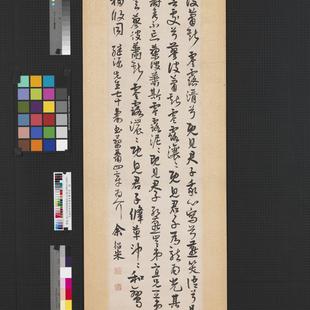 彼蕭斯零露湑兮既見君子我心寫兮燕笑語兮是
處兮蓼彼蕭斯零露瀼〻既見君子為龍為光其
壽考不忘蓼彼蕭斯零露泥〻既見君子孔燕豈弟宜兄宜弟
蓼彼蕭斯零露濃〻既見君子鞗革沖〻和鸞
福攸同 先生七十 書蓼蕭四章為介 余紹宋